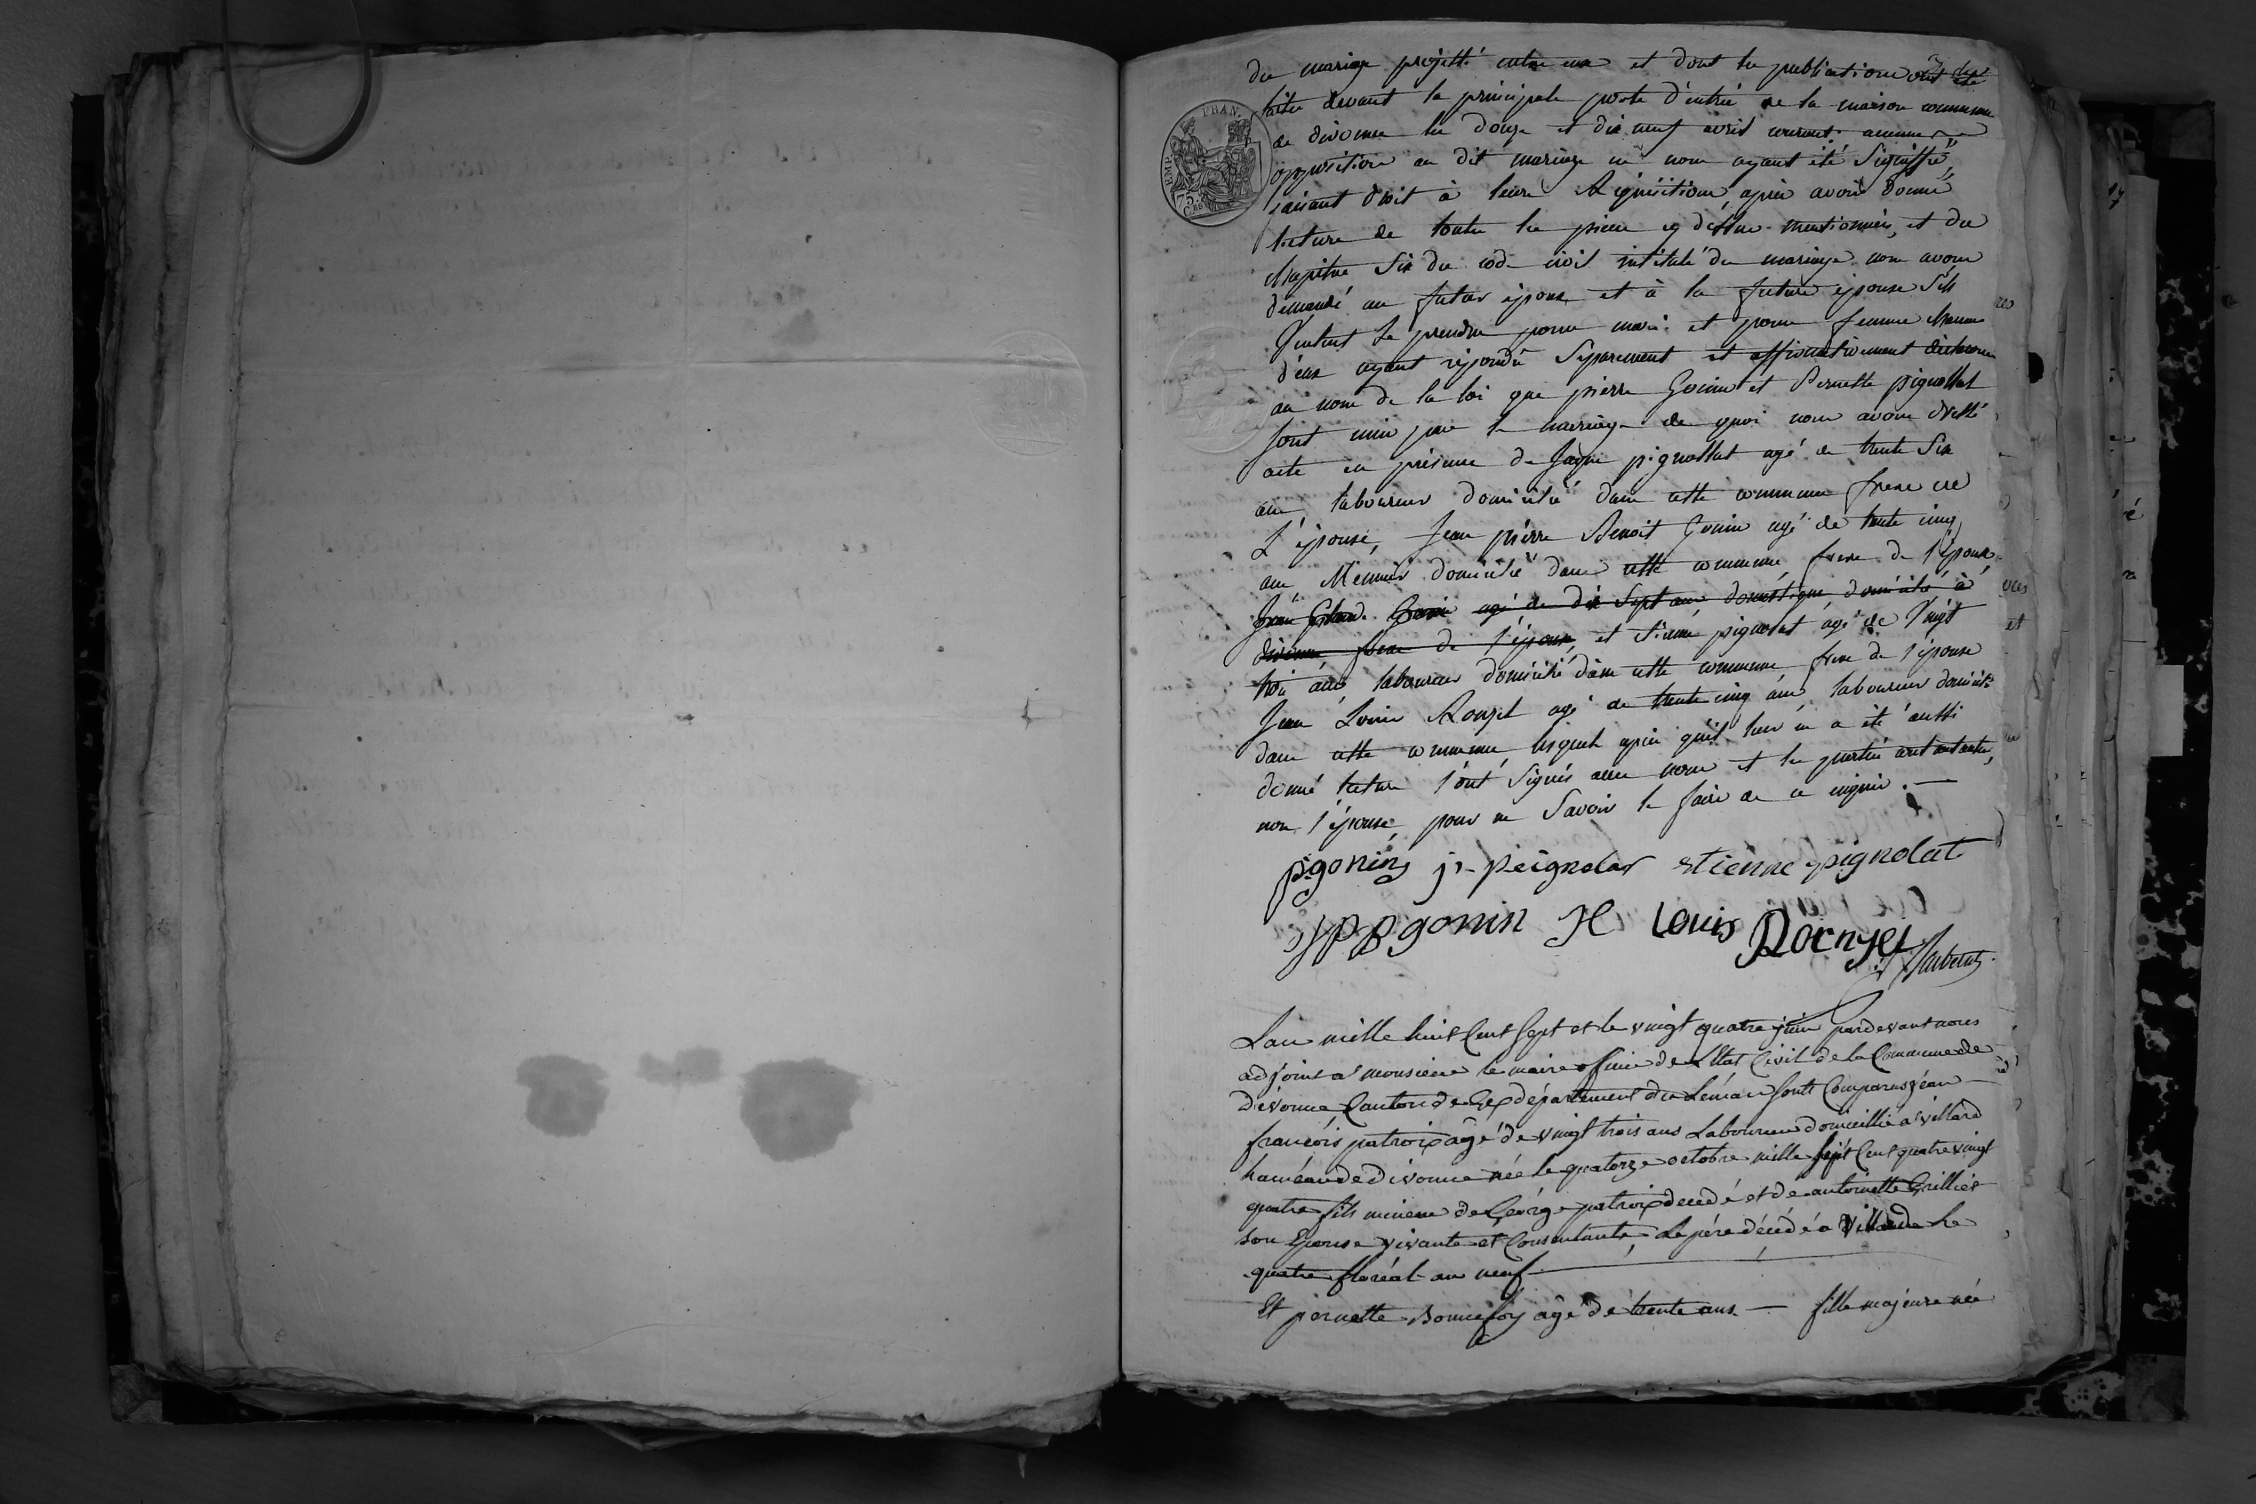 du mariage projetté entre eux et dont les publications ont été
faites devant la principale porte d'entrée de la maison commune
de divonne les douze et dix neuf avril courant. aucune
opposition au dit mariage ne nous ayant été signiffié,
faisant droit à leurs Réquisitions, après avoir donné
lecture de toutes les pieces cy dessus mentionnées, et du
chapitre Six du code civil intitulé du mariage nous avons
demandé au futur époux et à la future épouse S'ils
Veulent se prendre pour mari et pour femme chacun
d'eux ayant répondû Séparement et affirmativement declarons
au nom de la loi que pierre Gonin et Pernette pignollat
Sont unis par le mariage de quoi nous avons dressé
acte en présence de Jaque pignollat agé de trente Six
ans laboureur domicilié dans cette commune frere de
L'épouse, Jean pierre Benoit Gonin agé de trente cinq
ans Meunier domicilié dans cette commune frere de l'époux
Jean Gonin agé de dix Sept ans doméstique domicilié à
divonne frere de l'époux, et Etienne pignolat agé de Vingt
trois ans laboureur domicilié dans cette commune frere de l'épouse
Jean Louis Rouzet agé de trente cinq ans laboureur domicilié
dans cette commune lesquels après qu'il leur en a été aussi
donné lecture l'ont Signés avec nous et les parties contractantes,
non l'épouse pour ne Savoir le faire de ce enquise. —
EMP. FRAN.
75.
p. gonin j. peignolat Etienne pignolat
JPB gonin Jn Louis
L'an mille huit Cent Sept et le vingt quatre juin pardevant nous
adjoint a monsieur le maire officier de L'Etat Civil de la Commune de
Divonne Canton de Gex département du Léman sont Comparus Jean
françois patroix agé de vingt trois ans Laboureur domicillié a villard
hameau de divonne née le quatorze octobre mille Sept Cent quatre vingt
quatre fils mineur de George patroix decedé et de antoinette Grillet
son Epouse vivante et Consentante, Le pére décédé a Villard le
quatre floréal an neuf —
Et pernette Bonnefoy agé de trente ans — fille majeure née